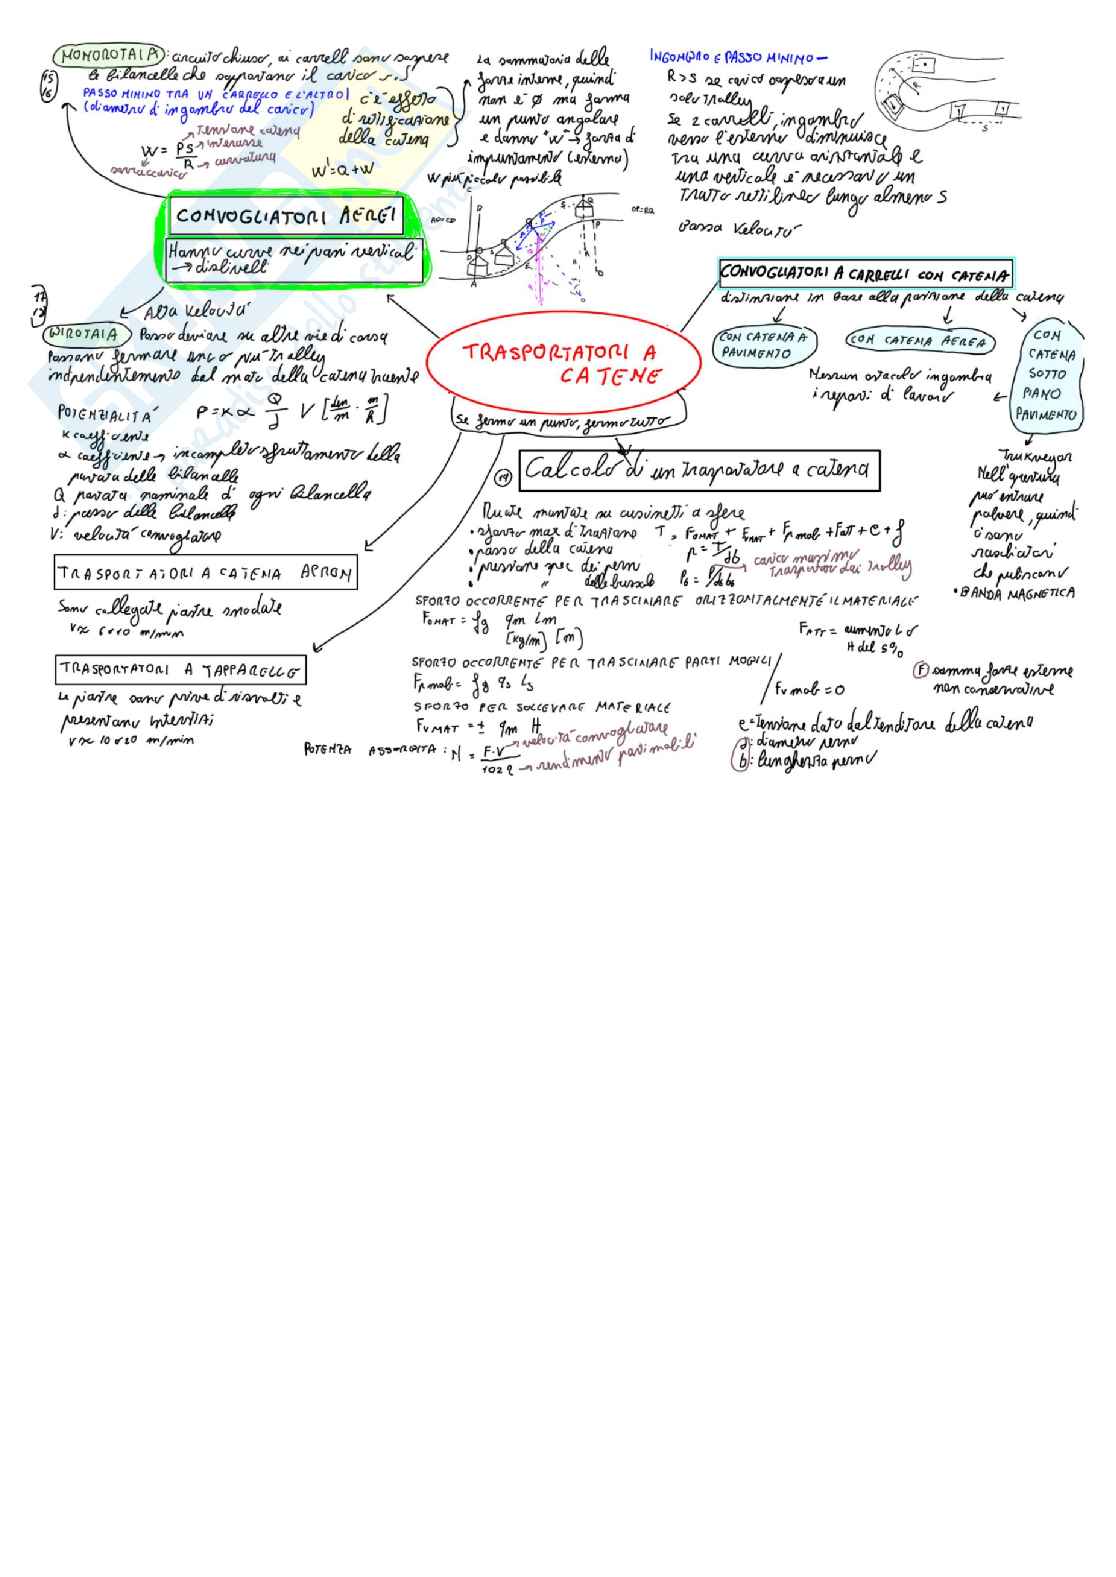 MONOROTAIA: circuito chiuso, ai carrelli sono sospese
le bilancelle che sopportano il carico
15
16
PASSO MINIMO TRA UN CARRELLO E L'ALTRO
(diametro d'ingombro del carico)
W = PS / R
tensione catena
interasse
curvatura
sovraccarico
c'è effetto
di rettificazione
della catena
W' = Q + W
La sommatoria delle
forze interne, quindi
non è Ø ma forma
un punto angolare
e danno "W" → forza d'
impuntamento (esterno)
W più piccolo possibile
INGOMBRO E PASSO MINIMO
R > S se carico appeso a un
solo trolley
Se 2 carrelli, ingombro
verso l'esterno diminuisce
Tra una curva orizzontale e
una verticale è necessario un
Tratto rettilineo lungo almeno S
Bassa velocità
CONVOGLIATORI AEREI
Hanno curve nei piani verticali
→ dislivelli
17
Alta velocità
BIROTAIA
Posso deviare su altre vie di corsa
Possono fermare uno o più trolley
indipendentemente dal moto della catena traente
POTENZIALITÀ P = K α Q/J V
K coefficiente
α coefficiente → incompleto sfruttamento della
portata delle bilancelle
Q portata nominale di ogni bilancella
J: passo delle bilancelle
V: velocità convogliatore
TRASPORTATORI A
CATENE
Se fermo un punto, fermo tutto
CONVOGLIATORI A CARRELLI CON CATENA
distinzione in base alla posizione della catena
CON CATENA A
PAVIMENTO
CON CATENA AEREA
CON
CATENA
SOTTO
PIANO
PAVIMENTO
Nessun ostacolo ingombra
i reparti di lavoro
Nell'apertura
può entrare
polvere, quindi
ci sono
raschiatori
che puliscono
• BANDA MAGNETICA
Calcolo di un trasportatore a catena
Ruote montate su cuscinetti a sfere
• sforzo max di trazione T = FOMAT + FVMAT + FPmob + Fatt + e + f
• passo della catena p = T/db carico massimo
trasportato dai trolley
• pressione spec dei perni
• " delle bussole
SFORZO OCCORRENTE PER TRASCINARE ORIZZONTALMENTE IL MATERIALE
FOMAT = fg qm Lm
[kg/m] [m]
SFORZO OCCORRENTE PER TRASCINARE PARTI MOBILI
FPmob = fg qs Ls
Fvmob = 0
SFORZO PER SOLLEVARE MATERIALE
FVMAT = ± qm H
POTENZA ASSORBITA: N = F·V / 102 η
velocità convogliatore
rendimento parti mobili
FATT = aumento L o
H del 5%
F somma forze esterne
non conservative
e = Tensione dato dal tenditore della catena
d: diametro perno
b: lunghezza perno
TRASPORTATORI A CATENA APRON
Sono collegate piastre snodate
TRASPORTATORI A TAPPARELLE
Le piastre sono prive di risvolti e
presentano interstizi